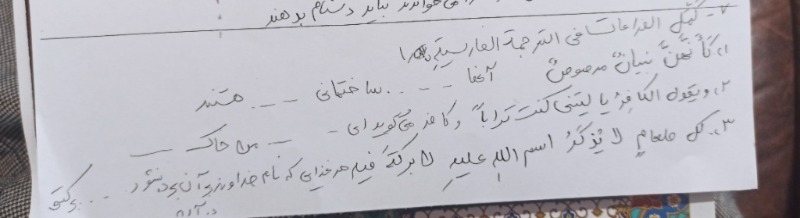 می‌خوانند نباید دشنام بدهند
۷- كمّل الفراغات فی الترجمة الفارسیة
۱، كأنّهنّ بنیانٌ مرصوصٌ آنها - - - ساختمانی - - - هستند
۲، ویقول الكافرُ یا لیتنی كنت تراباً و کافر می‌گوید ای - - - من خاک - - -
۳، كل طعامٍ لا یُذكَرُ اسم اللهِ علیهِ لا بركةَ فیهِ هر غذایی که نام خداوند بر آن برده نشود - - - برکتی
در آن